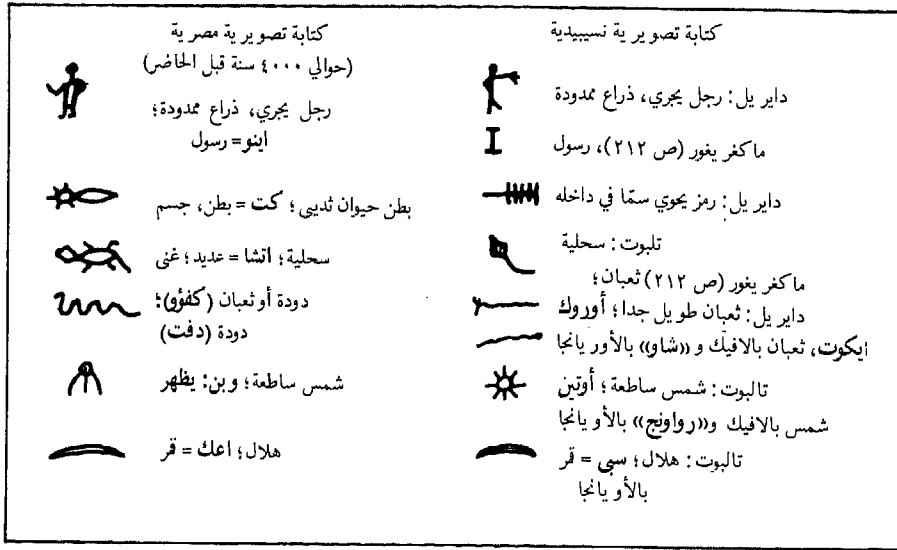 كتابة تصويرية نسيبيدية
داير يل: رجل يجري، ذراع ممدودة
ماكغر يغور (ص ٢١٢)، رسول
داير يل: رمز يحوي سمّا في داخله
تلبوت: سحلية
ماكغر يغور (ص ٢١٢) ثعبان؛
داير يل: ثعبان طويل جدا؛ أوروك
ايكوت، ثعبان بالافيك و «شاو» بالأور يانجا
تالبوت: شمس ساطعة؛ أوتين
شمس بالافيك و «رواونج» بالأو يانجا
تالبوت: هلال؛ سبى = قر
بالأو يانجا
كتابة تصويرية مصرية
(حوالي ٤٠٠٠ سنة قبل الحاضر)
رجل يجري، ذراع ممدودة؛
اينو = رسول
بطن حيوان ثديى؛ كت = بطن، جسم
سحلية؛ اتشا = عديد؛ غنى
دودة أو ثعبان (كفؤو)؛
دودة (دفت)
شمس ساطعة؛ وبن: يظهر
هلال؛ اعك = قر